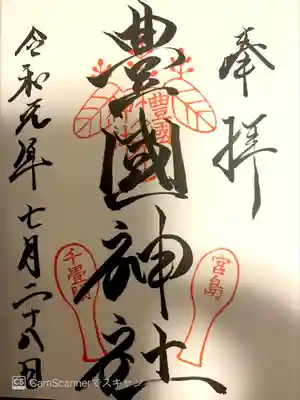 奉拝
豊國神社
豊國
千畳閣
宮島
令和元年七月二十八日
CS CamScannerでスキャン